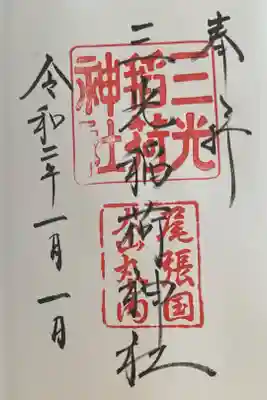 奉拝
三光稲荷神社
三光
稲荷
神社
尾張国
犬山丸内
令和二年一月一日